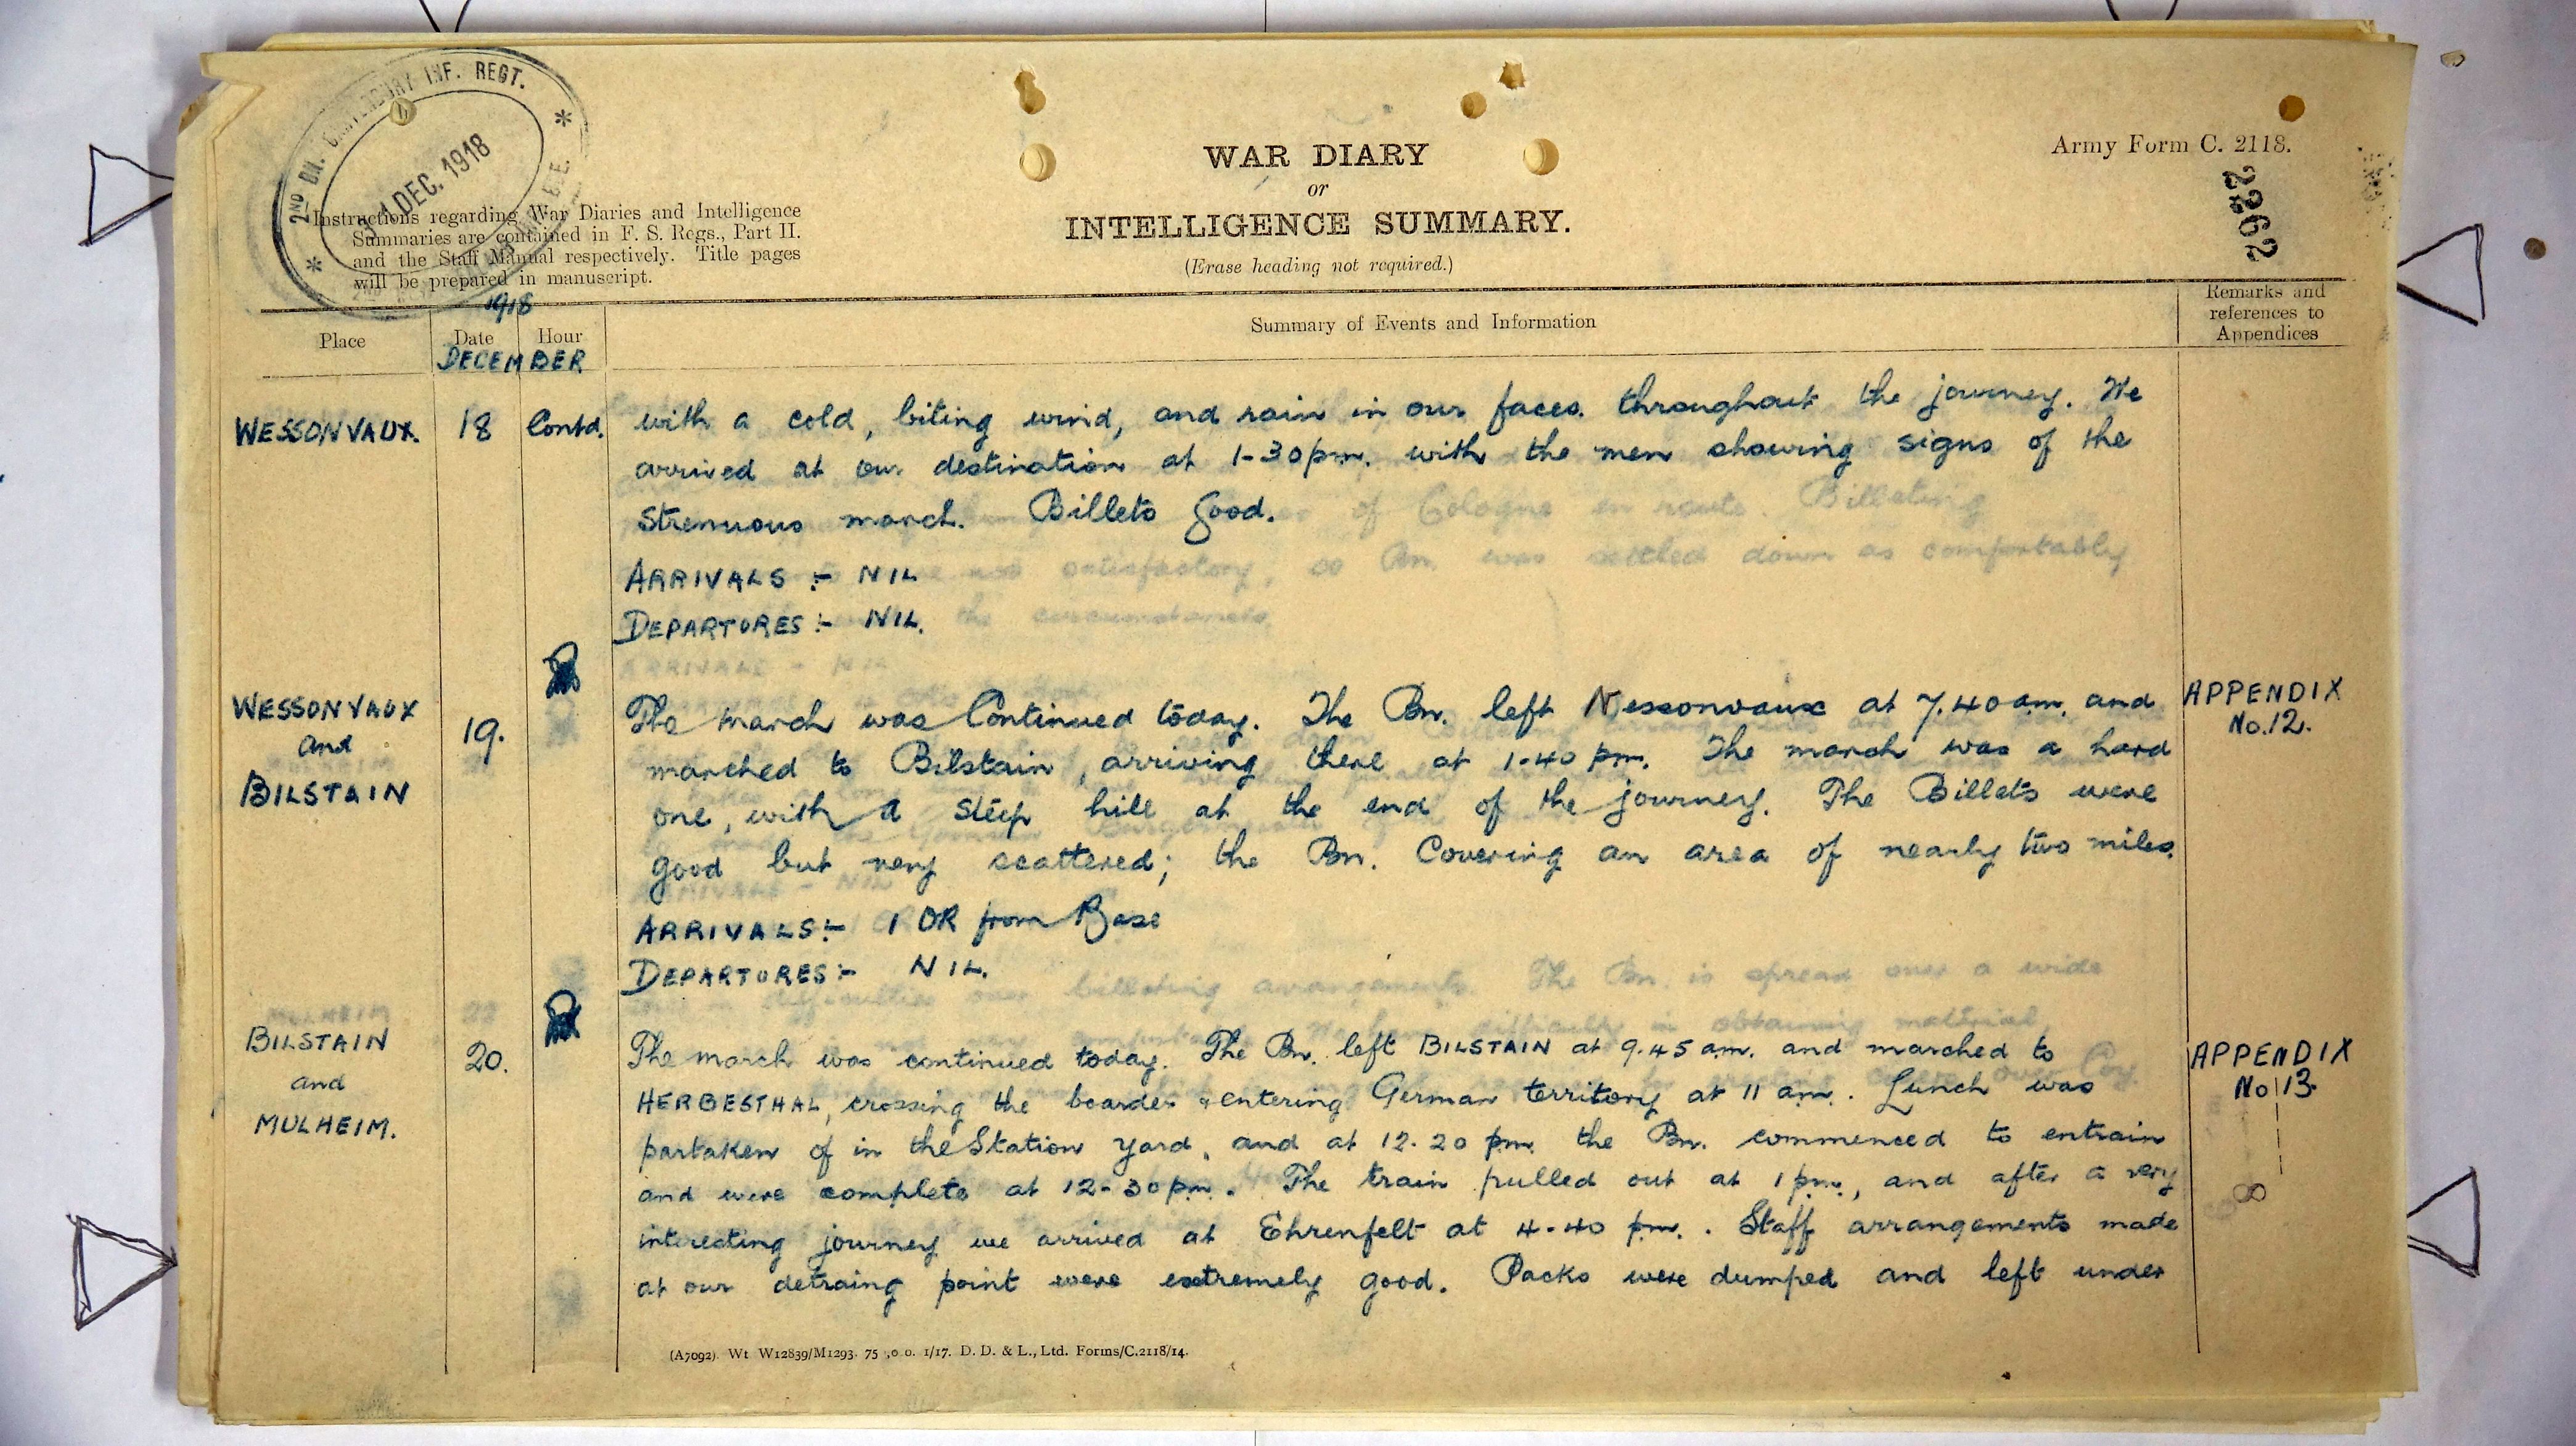 2ND BN. CANTERBURY INF. REGT.
DEC. 1918
WAR DIARY
or
INTELLIGENCE SUMMARY.
(Erase heading not required.)
Army Form C. 2118.
2962
Instructions regarding War Diaries and Intelligence
Summaries are contained in F. S. Regs., Part II.
and the Staff Manual respectively. Title pages
will be prepared in manuscript.
1918
Place
Date
Hour
Summary of Events and Information
Remarks and
references to
Appendices
DECEMBER
WESSONVAUX. 18 Contd. with a cold, biting wind, and rain in our faces throughout the journey. We
arrived at our destination at 1-30pm. with the men showing signs of the
strenuous march. Billets Good.
ARRIVALS :- NIL
DEPARTURES :- NIL.
WESSONVAUX
and
BILSTAIN
19.
The march was Continued today. The Bn. left Nessonvaux at 7.40 am. and
marched to Bilstain, arriving there at 1-40 pm. The march was a hard
one, with a steep hill at the end of the journey. The Billets were
good but very scattered; the Bn. Covering an area of nearly two miles.
ARRIVALS :- 1 OR from Base
DEPARTURES :- NIL.
APPENDIX
No.12.
BILSTAIN
and
MULHEIM.
20.
The march was continued today. The Bn. left BILSTAIN at 9.45 am. and marched to
HERBESTHAL, crossing the boarder & entering German territory at 11 am. Lunch was
partaken of in the Station Yard, and at 12-20 pm the Bn. commenced to entrain
and were complete at 12-30pm. The train pulled out at 1 pm., and after a very
interesting journey we arrived at Ehrenfelt at 4-40 pm. . Staff arrangements made
at our detraing point were extremely good. Packs were dumped and left under
APPENDIX
No 13.
8
(A7092). Wt W12839/M1293. 75 ,0 0. 1/17. D. D. & L., Ltd. Forms/C.2118/14.